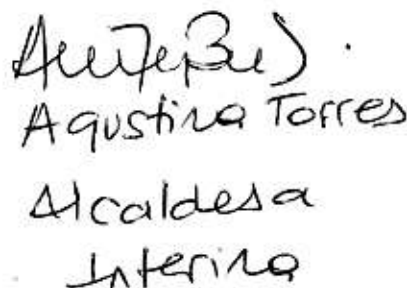 Agustina Torres
Alcaldesa
Interina